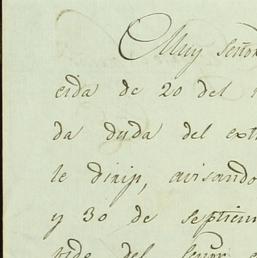 Muy Señor
cida de 20 del
da duda del ext
le dirip, avisando
y 30 de septiem
pide del señor